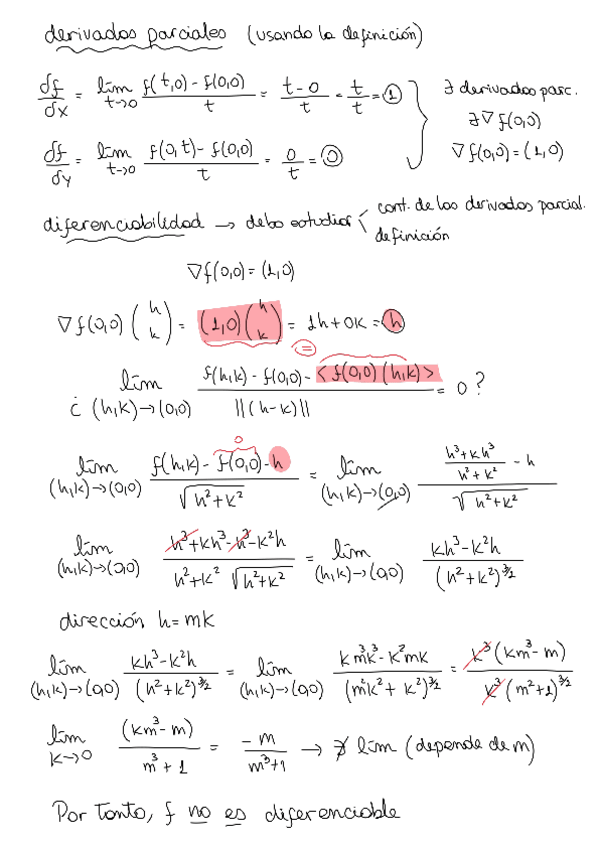 derivadas parciales (usando la definición)
df/dx = lím t→0 f(t,0) - f(0,0)/t = t-0/t = t/t = 1
∃ derivadas parc.
∃ ∇f(0,0)
df/dy = lím t→0 f(0,t) - f(0,0)/t = 0/t = 0
∇f(0,0) = (1,0)
diferenciabilidad → debo estudiar < cont. de las derivadas parcial.
definición
∇f(0,0) = (1,0)
∇f(0,0) (h k) = (1,0) (h k) = 1h + 0k = h
=
¿ lím (h,k)→(0,0) f(h,k) - f(0,0) - <f(0,0) (h,k)> / ||(h-k)|| = 0 ?
0
lím (h,k)→(0,0) f(h,k) - f(0,0) - h / √h²+k² = lím (h,k)→(0,0) h³+kh³/h²+k² - h / √h²+k²
lím (h,k)→(0,0) h³+kh³-h³-k²h / h²+k² √h²+k² = lím (h,k)→(0,0) kh³-k²h / (h²+k²)^3/2
dirección h=mk
lím (h,k)→(0,0) kh³-k²h / (h²+k²)^3/2 = lím (h,k)→(0,0) k m³k³-k²mk / (m²k²+k²)^3/2 = k³(km³-m) / k³(m²+1)^3/2
lím k→0 (km³-m) / m³+1 = -m / m³+1 → ∄ lím (depende de m)
Por tanto, f no es diferenciable